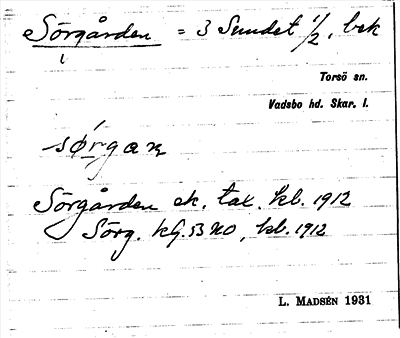 Sörgården = 3 Sundet 1/2, bek
Torsö sn.
Vadsbo hd. Skar. l.
sørgan
Sörgården ek. tax. kb. 1912
Sörg. kG. 53 NO, kb. 1912
L. MADSÉN 1931